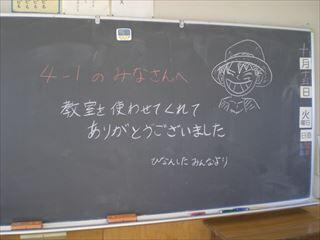 4-1のみなさんへ
教室を使わせてくれて
ありがとうございました
ひなんした みんなより
十
月
十
日
火
曜日
日直